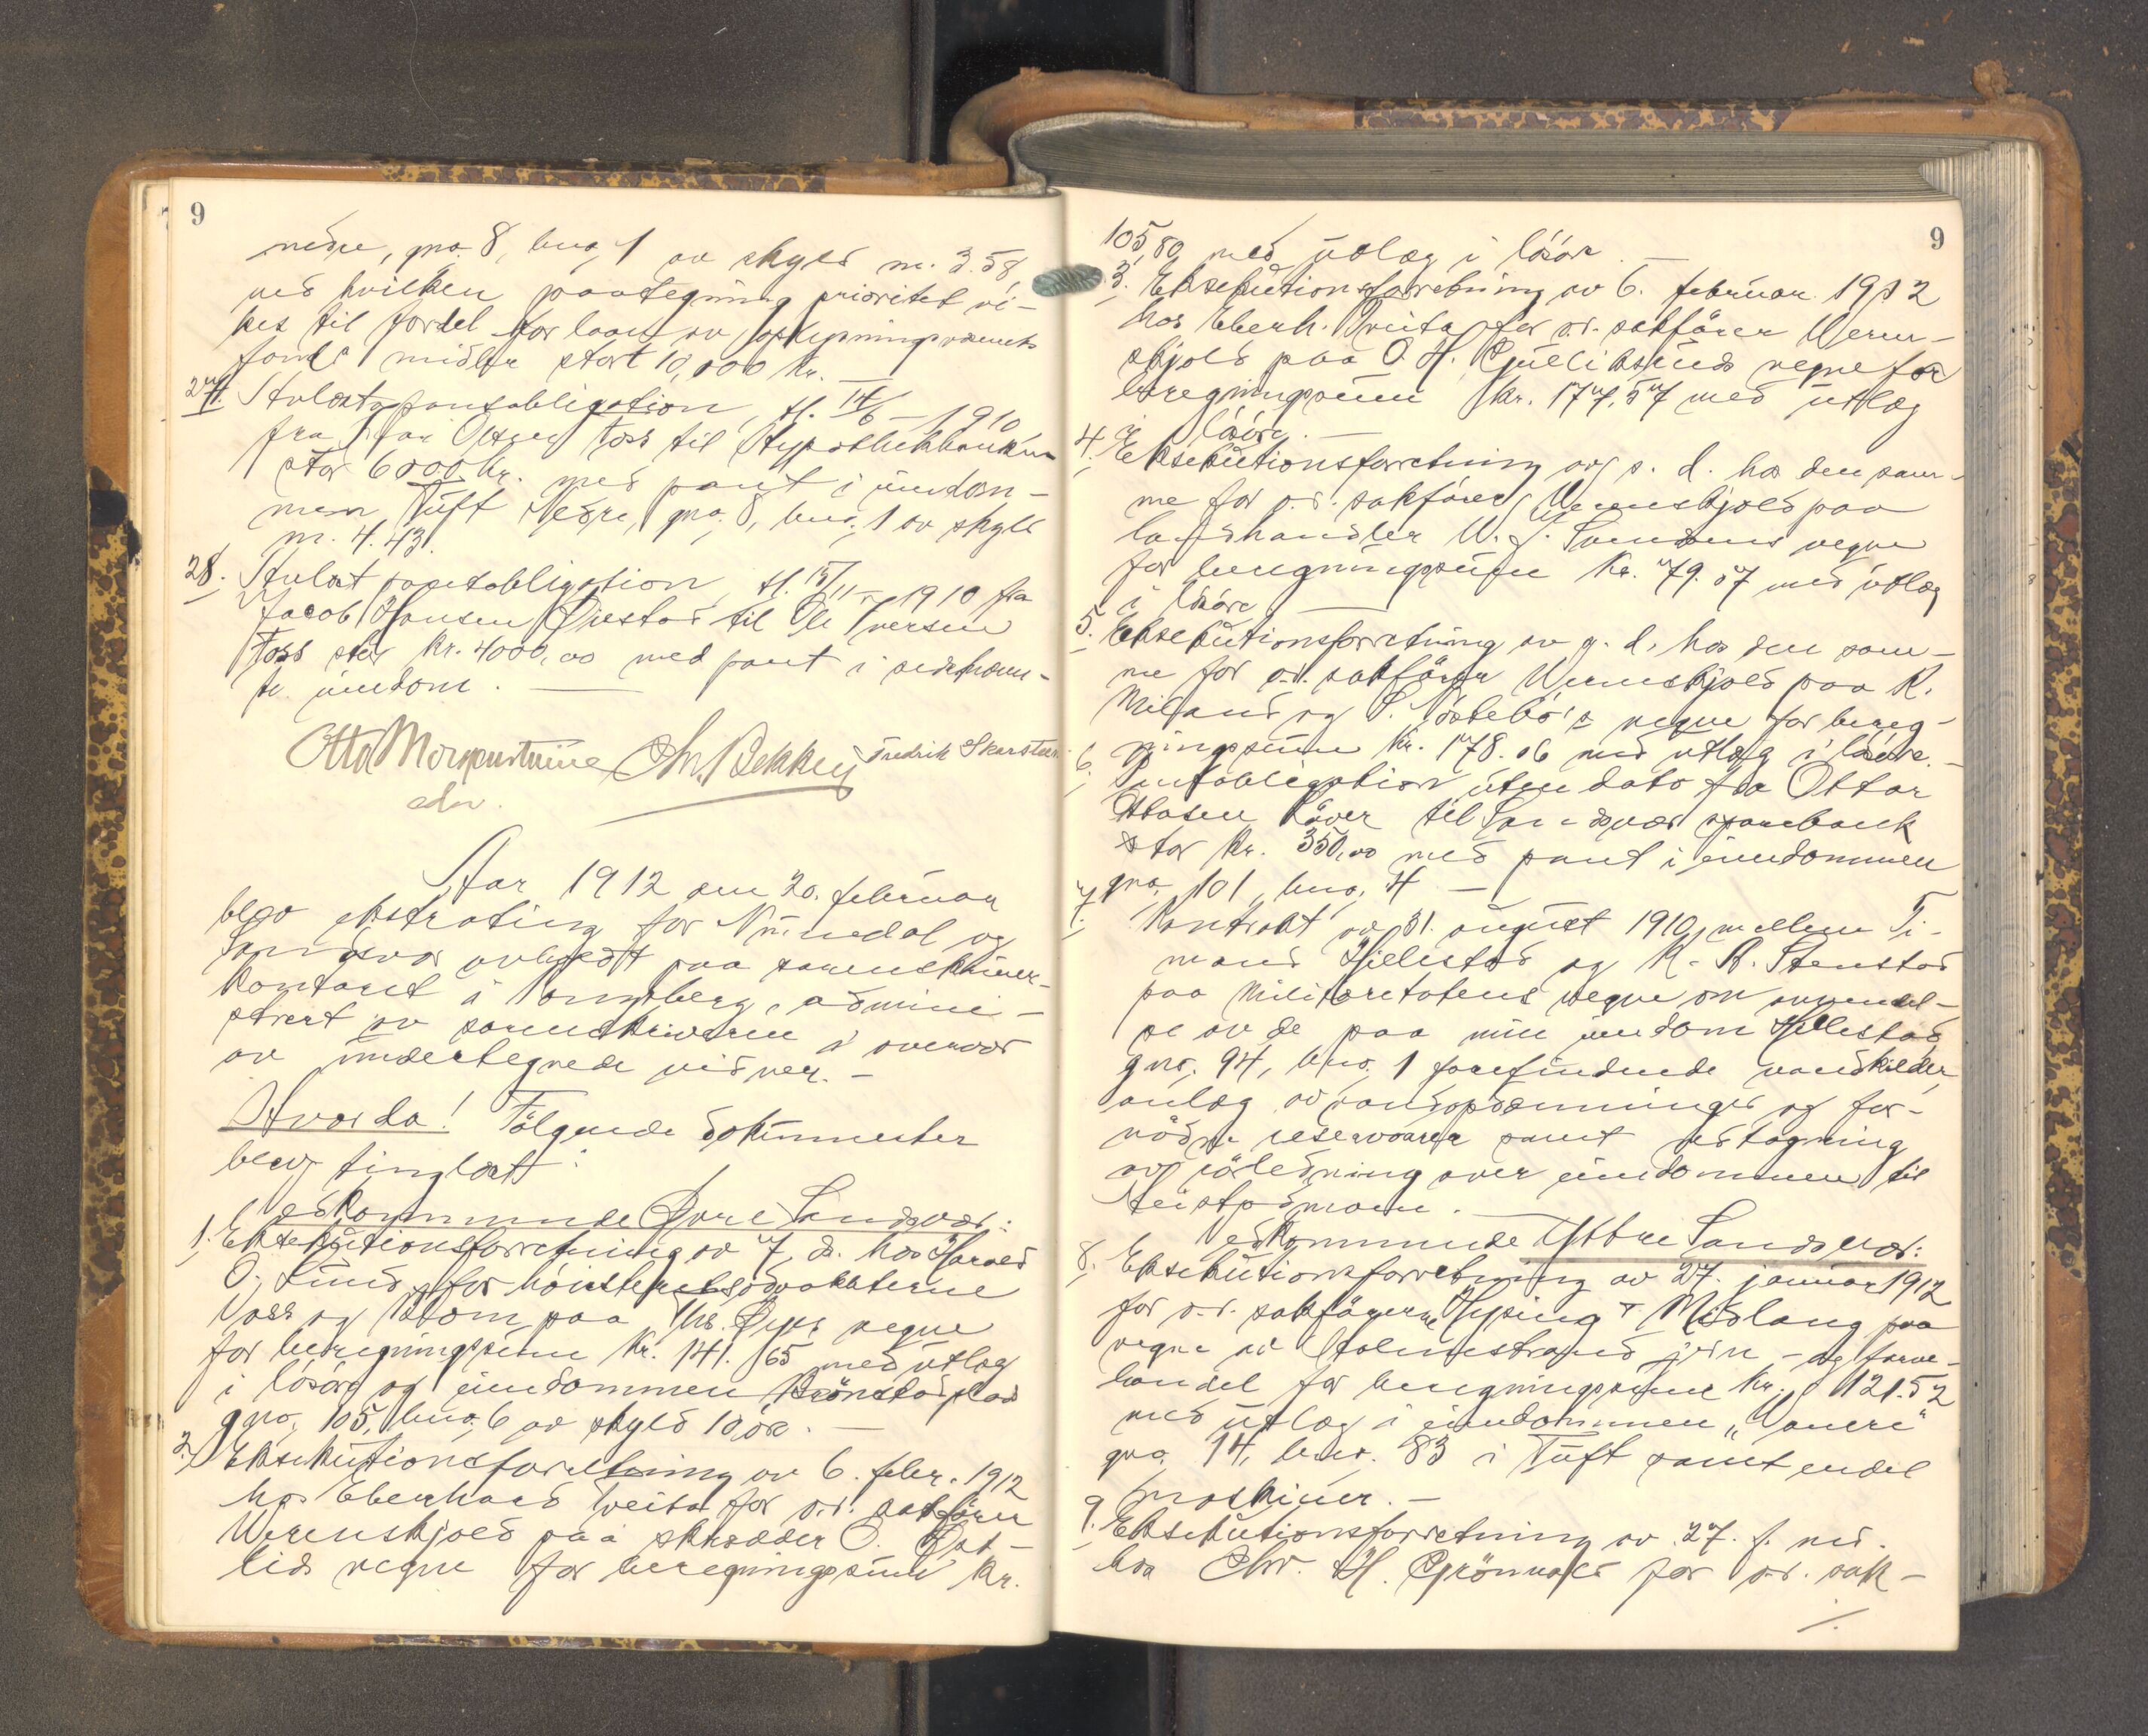 9
nedre, gno. 8, bno. 1 av skyld m. 3.58
ved hvilken paategning prioritet vi-
kes til fordel for laan av
fonds midler stort 10,000 kr. —
27. Avlæst pantobligation, tl. 14/6 – 1910
fra Olsen Foss til Hypothekbanken
stor 6000 kr. med pant i eiendom-
men Tuft Nedre, gno. 8, bno. 1 av skyld
m. 4.43.
28. Avlæst pantobligation, tl. 15/11 – 1910 fra
Jacob Hansen til Ole Iversen
Foss stor kr. 4000,00 med pant i sidstnævn-
te eiendom. —
Otto Chr. Bekken Fredrik Skarsteen
edv.
Aar 1912 den 20. februar
blev ekstrating for Numedal og
Sandsvær avholdt paa sorenskriver-
kontoret i Kongsberg, admini-
strert av sorenskriveren i overvær
av undertegnede vidner. —
Hvorda! Følgende dokumenter
blev tinglæst:
Vedkommende Øvre Sandsvær:
1. Eksekutionsforretning av 7. ds. hos Harald
O. Lund, for høiesteretsadvokaterne
Voss og Blom paa Chr. vegne
for beregningssum kr. 141.65 med utlæg
i løsøre og eiendommen Brønstadplads
gno. 105, bno. 6 av skyld 10 øre. —
2. Eksekutionsforretning av 6. febr. 1912
hos Eberhard Tveita for o.r. sakfører
Werenskjold paa skrædder O.
lids vegne for beregningssum kr.
9
105,80 med utlæg i løsøre. —
3. Eksekutionsforretning av 6. februar 1912
hos Eberh. Tveita for o.r. sakfører Weren-
skjold paa O. H. Gulliksruds vegne for
beregningssum kr. 177,57 med utlæg
i løsøre. —
4. Eksekutionsforretning av s. d. hos den sam-
me for o.r. sakfører Werenskjold paa
landhandler W. J. Svendsens vegne
for beregningssum kr. 79.57 med utlæg
i løsøre —
5. Eksekutionsforretning av s. d. hos den sam-
me for o.r. sakfører Werenskjold paa K.
Miland og S. Nøstebø's vegne for bereg-
ningssum kr. 178.06 med utlæg i løsøre. —
6. Pantobligation uten dato fra Ottar
Ottosen Raaen til Sandsvær sparebank
stor kr. 350,00 med pant i eiendommen
gno. 101, bno. 4 —
7. Kontrakt av 31. august 1910 mellem Ti-
mand Hillestad og K. A. Stenstad
paa Militæretatens vegne om anvendel-
se av de paa min eiendom Hillestad
gno. 94, bno. 1 forefindende vandkilder,
anlæg av vandopdæmninger og for-
nødne reservoarer samt nedlægning
av rørledning over eiendommen til
Heistadmoen. —
Vedkommende Ytre Sandsvær:
8. Eksekutionsforretning av 27. januar 1912
for o.r. sakførerne Hysing & Midlang paa
vegne av Holmestrands jern- og farve-
handel for beregningssum kr. 121.52
med utlæg i eiendommen „Vaneri“
gno. 14, bno. 83 i Tuft samt endel
maskiner. —
9. Eksekutionsforretning av 27. f. md.
hos Chr. H. Grønvold for o.r. sak-
./.